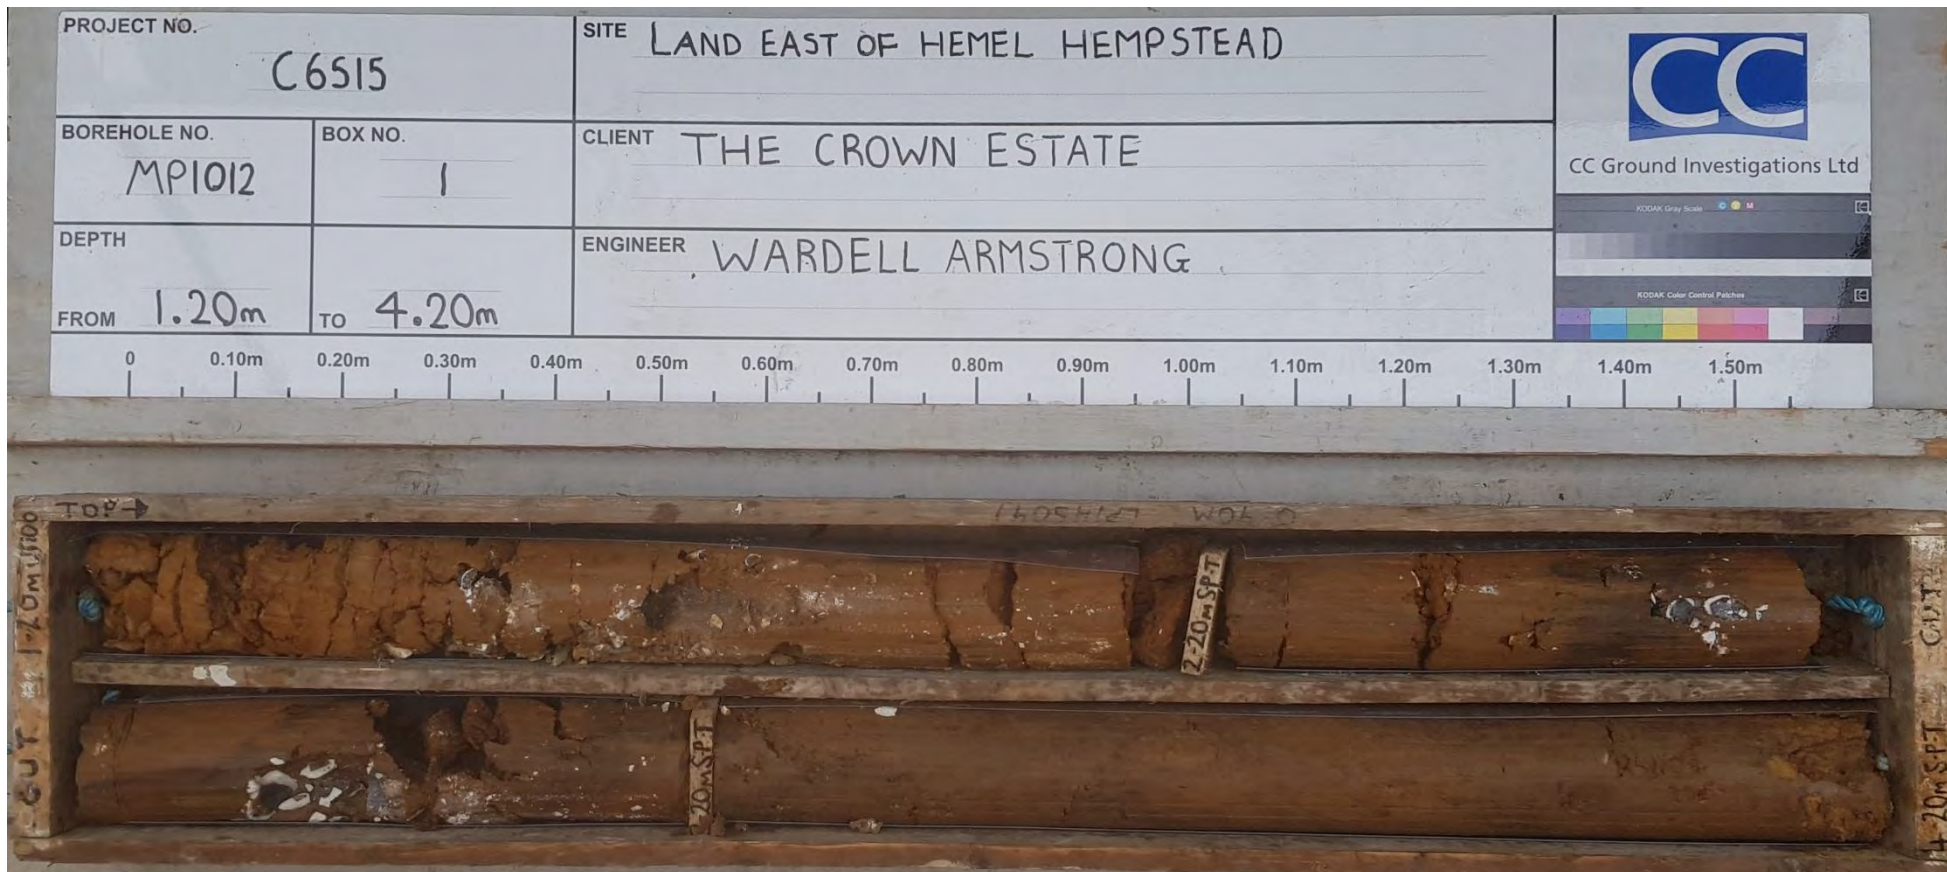 PROJECT NO.
C6515
SITE LAND EAST OF HEMEL HEMPSTEAD
CC
CC Ground Investigations Ltd
BOREHOLE NO.
MP1012
BOX NO.
1
CLIENT THE CROWN ESTATE
DEPTH
FROM 1.20m TO 4.20m
ENGINEER WARDELL ARMSTRONG
KODAK Gray Scale C Y M
KODAK Color Control Patches
0 0.10m 0.20m 0.30m 0.40m 0.50m 0.60m 0.70m 0.80m 0.90m 1.00m 1.10m 1.20m 1.30m 1.40m 1.50m
TOP→
1.20m
2.20m S.P.T
CUT
CUT
20m S.P.T
4.20m S.P.T